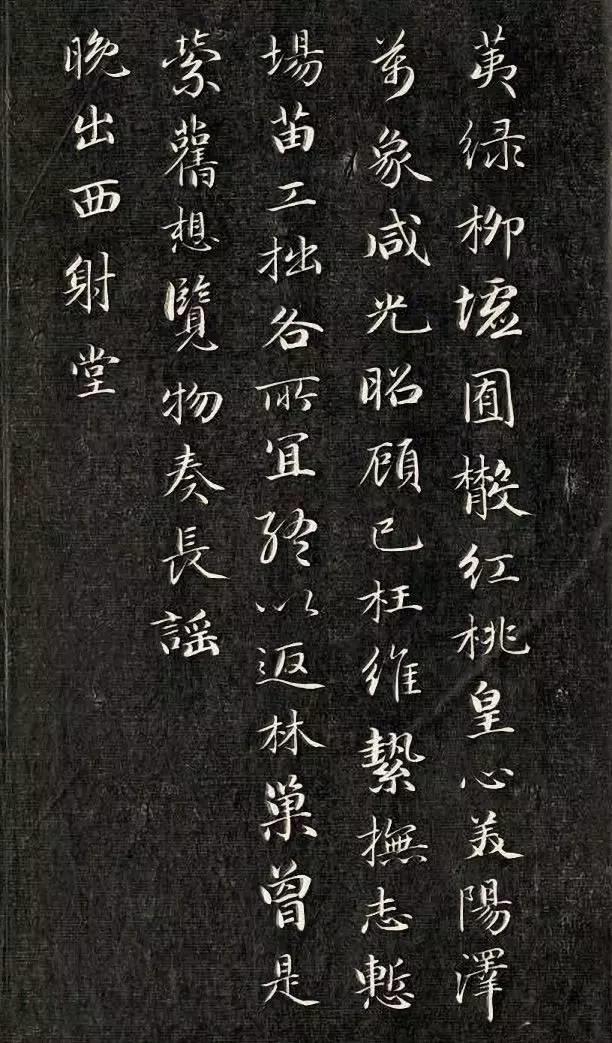 荑绿柳墟囿散红桃皇心美陽澤
萬象咸光昭顧己枉維縶撫志慙
場苗工拙各所宜終以返林巢曾是
縈舊想覽物奏長謡
晚出西射堂